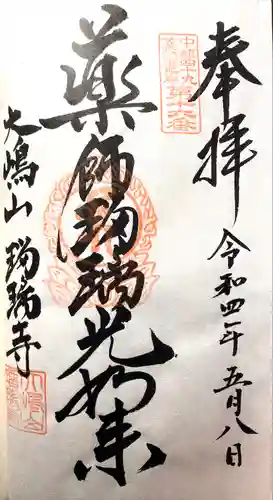 奉拝
令和四年五月八日
中国四十九
薬師霊場
第十六番
薬師瑠璃光如来
大嶋山 瑠璃寺